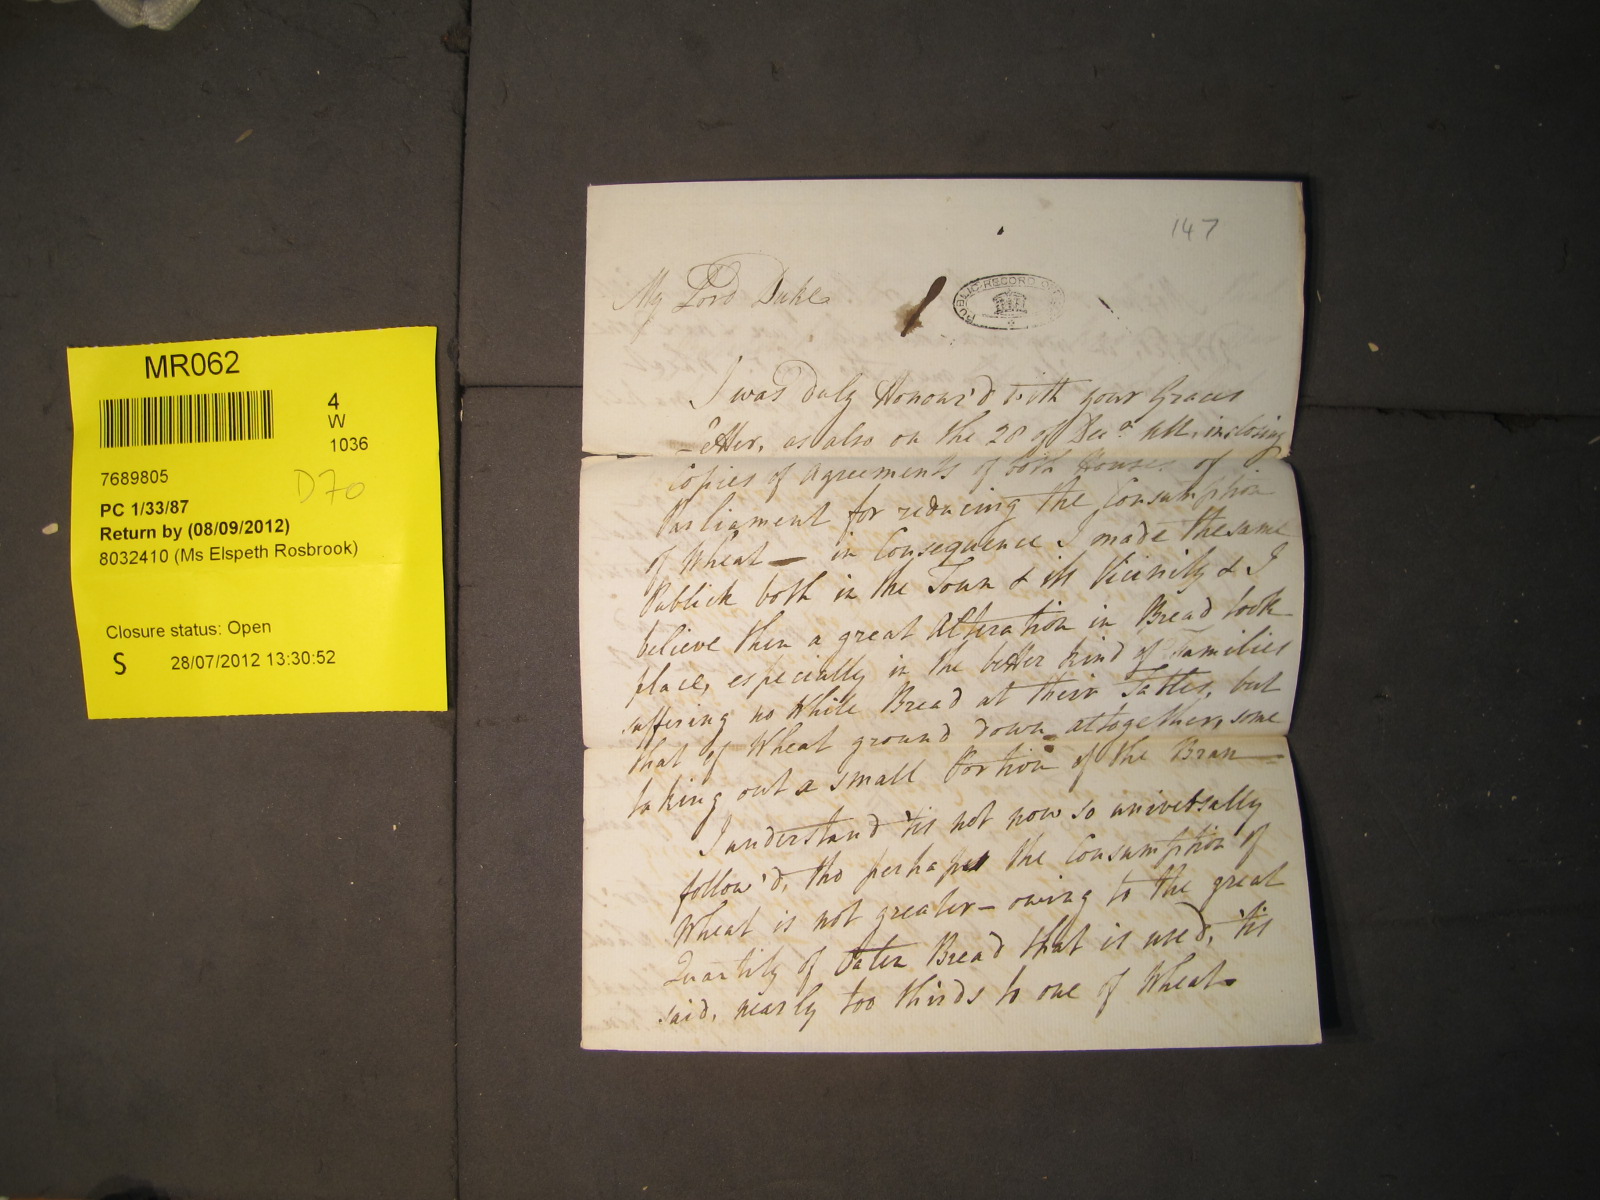 MR062
4
W
1036
7689805
D70
PC 1/33/87
Return by (08/09/2012)
8032410 (Ms Elspeth Rosbrook)
Closure status: Open
S 28/07/2012 13:30:52
147
PUBLIC RECORD OFFICE
My Lord Duke
I was duly Honour'd with your Graces
Letter, as also on the 28 of Decr. ult, inclosing
Copies of Agreements of both Houses of
Parliament for reducing the Consumption
of Wheat — in Consequence I made the same
Publick both in the Town & its Vicinity & I
believe then a great Alteration in Bread took
place, especially in the better kind of Families
suffering no White Bread at their Tables, but
that of Wheat ground down altogether, some
taking out a small Portion of the Bran —
I understand 'tis not now so universally
follow'd, tho perhaps the Consumption of
Wheat is not greater — owing to the great
Quantity of Oaten Bread that is used, 'tis
said, nearly too thirds to one of Wheat.